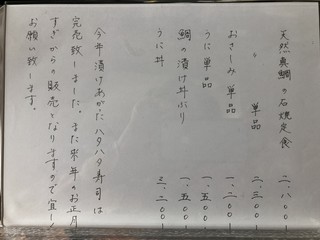 天然真鯛の石焼定食 二、八〇〇ー
〃 単品 二、三〇〇ー
おさしみ 単品 一、二〇〇ー
うに 単品 一、五〇〇ー
鯛の漬け丼ぶり 一、五〇〇ー
うに丼 三、二〇〇ー
今年漬けあがったハタハタ寿司は
完売致しました。また来年のお正月
すぎからの販売となりますので宜しく
お願い致します。